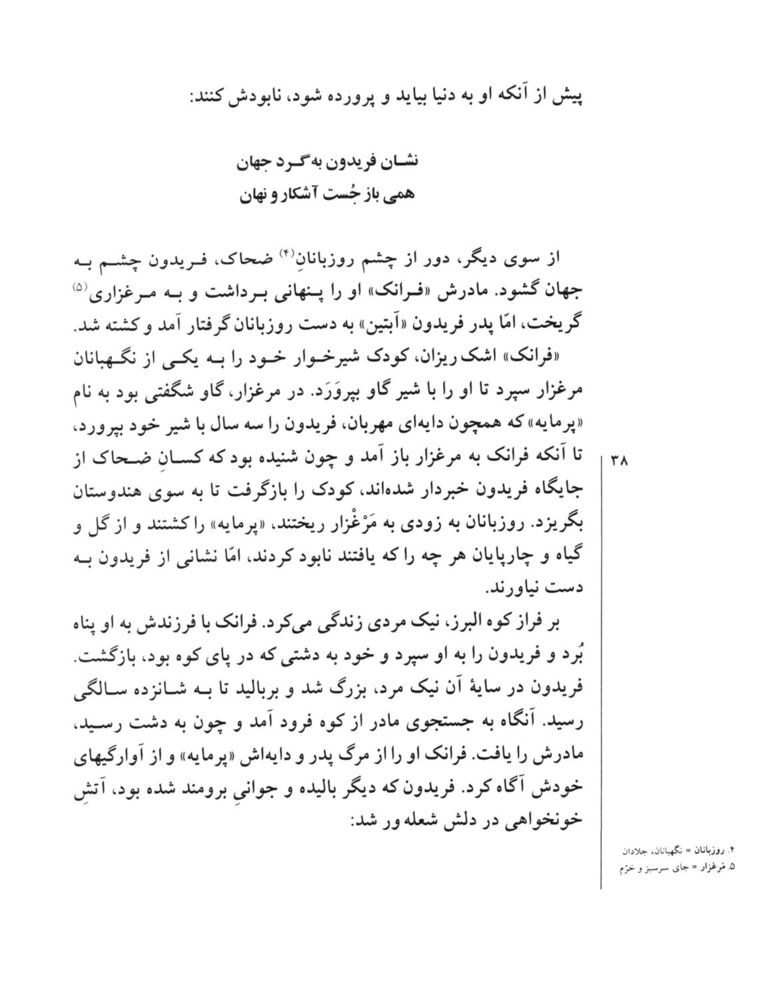 پیش از آنکه او به دنیا بیاید و پرورده شود، نابودش کنند:
نشان فریدون به گرد جهان
همی باز جُست آشکار و نهان
از سوی دیگر، دور از چشم روزبانانِ(۴) ضحاک، فریدون چشم به
جهان گشود. مادرش «فرانک» او را پنهانی برداشت و به مرغزاری(۵)
گریخت، امّا پدر فریدون «آبتین» به دست روزبانان گرفتار آمد و کشته شد.
«فرانک» اشک ریزان، کودک شیرخوار خود را به یکی از نگهبانان
مرغزار سپرد تا او را با شیر گاو بپروَرَد. در مرغزار، گاو شگفتی بود به نام
«پرمایه» که همچون دایه‌ای مهربان، فریدون را سه سال با شیر خود بپرورد،
تا آنکه فرانک به مرغزار باز آمد و چون شنیده بود که کسانِ ضحاک از
جایگاه فریدون خبردار شده‌اند، کودک را بازگرفت تا به سوی هندوستان
بگریزد. روزبانان به زودی به مَرْغْزار ریختند، «پرمایه» را کشتند و از گل و
گیاه و چارپایان هر چه را که یافتند نابود کردند، امّا نشانی از فریدون به
دست نیاورند.
بر فراز کوه البرز، نیک مردی زندگی می‌کرد. فرانک با فرزندش به او پناه
بُرد و فریدون را به او سپرد و خود به دشتی که در پای کوه بود، بازگشت.
فریدون در سایهٔ آن نیک مرد، بزرگ شد و بربالید تا به شانزده سالگی
رسید. آنگاه به جستجوی مادر از کوه فرود آمد و چون به دشت رسید،
مادرش را یافت. فرانک او را از مرگ پدر و دایه‌اش «پرمایه» و از آوارگیهای
خودش آگاه کرد. فریدون که دیگر بالیده و جوانیِ برومند شده بود، آتشِ
خونخواهی در دلش شعله ور شد:
۳۸
۴. روزبانان = نگهبانان، جلادان
۵. مَرغزار = جای سرسبز و خرّم